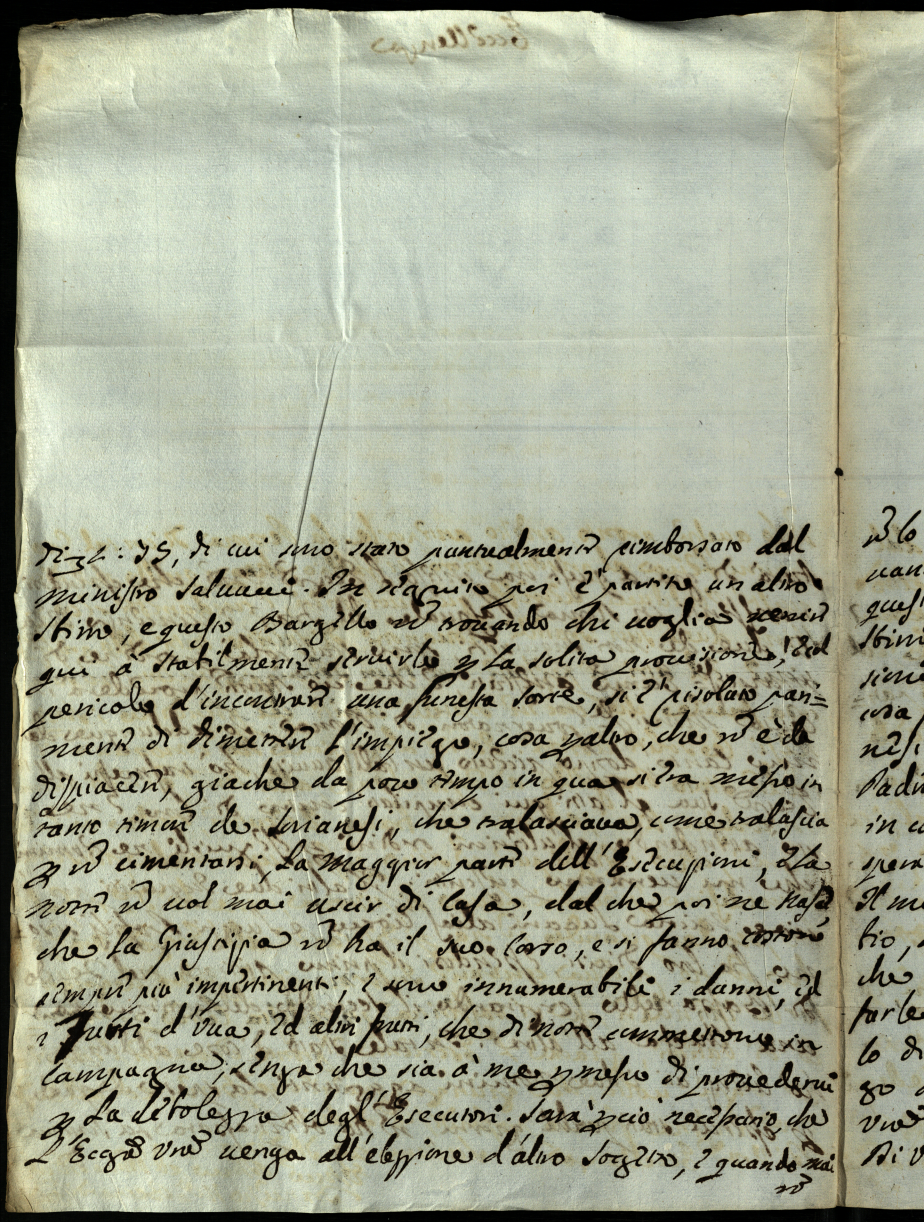 di :35, di cui sono stato puntualmente rimborsato dal
ministro Salvucci. In seguito poi è partito un altro
sbirro, e questo Bargello nō trovando chi voglia venire
qui à stabilmente servirlo ꝑ la solita provisione, ed
pericolo d'incontrare una funesta sorte, si è risoluto pari=
mente di dimettere l'impiego, cosa ꝑaltro, che nō è da
dispiacere, giache da poco tempo in qua si era messo in
tanto timore de Sorianesi, che tralasciava, come tralascia
ꝑ nō cimentarsi, la maggior parte dell'Esecuzioni, e la
notte nō vol mai uscir di Casa, dal che poi ne nasce
che la Giustizia nō ha il suo Corso, e si fanno costoro
sempre più impertinenti, e sono innumerabili i danni, ed
i furti d'Uva, ed altri frutti, che di notte commettono in
Campagna, senza che sia à me ꝑmesso di provedervi
ꝑ la debolezza degl'Esecutori. Sarà ꝑciò necessario, che
L'Eccza Vra venga all'elezzione d'altro Soggetto, e quando mai
nō
Eccellenza
nō lo
van
quest
sbirri
sime
cosa
nesi
Padr
in c
spera
Il m
tio,
che
farle
lo di
go
Vra
Di V